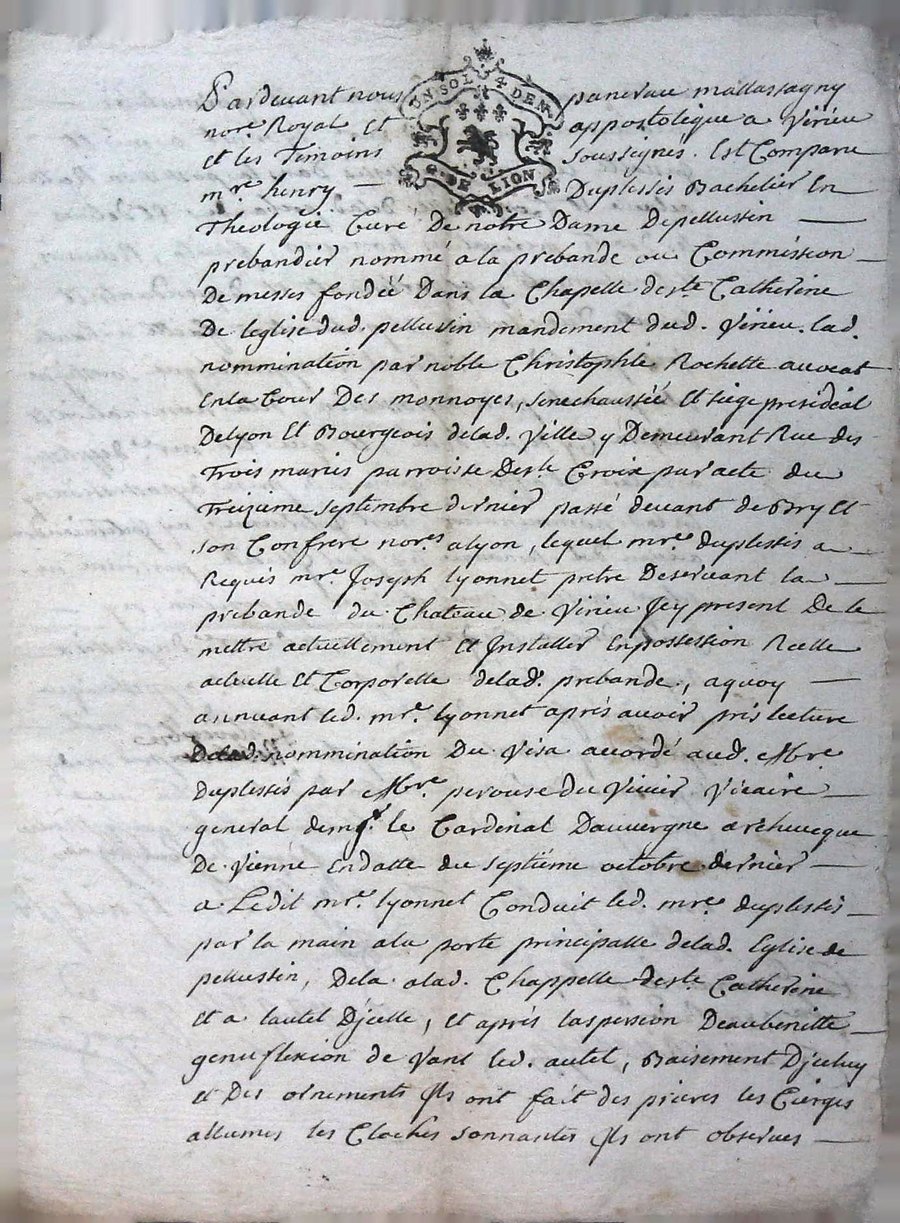 UN SOL 4 DEN.
G. DE LION
Pardevant nous pancrace mallassagny
nore. Royal Et appostolique a Virieu
et les Temoins soussignes. Est Comparu
mre. henry — Duplessis Bachelier En
Theologie Curé De notre Dame De pellussin —
prebandier nommé a la prebande ou Commission —
De messes fondéé Dans la Chapelle de ste. Catherine
De leglise dud. pellussin mandement dud. Virieu. lad.
nommination par noble Christophle Rochette avocat
En la Cour Des monnoyes, senechaussée Et siege presidial
De lyon Et Bourgeois de lad. Ville y Demeurant Rue des
Trois maries parroisse De ste. Croix par acte du
Treizieme septembre dernier passé devant de Bry Et
son Confrere nores. a lyon, lequel mre. duplessis a —
Requis mre. Joseph lyonnet pretre Deservant la —
prebande du Chateau de Virieu Jcy present De le
mettre actuellement Et Jnstaller En possession Reelle
actuelle Et Corporelle de lad. prebande, a quoy —
annuant led. mre. lyonnet apres avoir pris lecture
De lad. nommination Du Visa accordé aud. Mre.
Duplessis par Mre. perouse du Vivier Vicaire —
general de mgr. le Cardinal Dauvergne archeveque
De Vienne En datte du septiéme octobre dernier —
a Ledit mre. lyonnet Conduit led. mre. duplessis —
par la main a la porte principalle de lad. Eglise de
pellussin, De la a lad. Chappelle de ste. Catherine
Et a lautel Djcelle, Et aprés laspersion Deau benitte —
genuflexion de Vant led. autel, Baisement Djceluy
et Des ornements Jls ont fait des prieres les Cierges
allumes les Cloches sonnantes Jls ont observes —